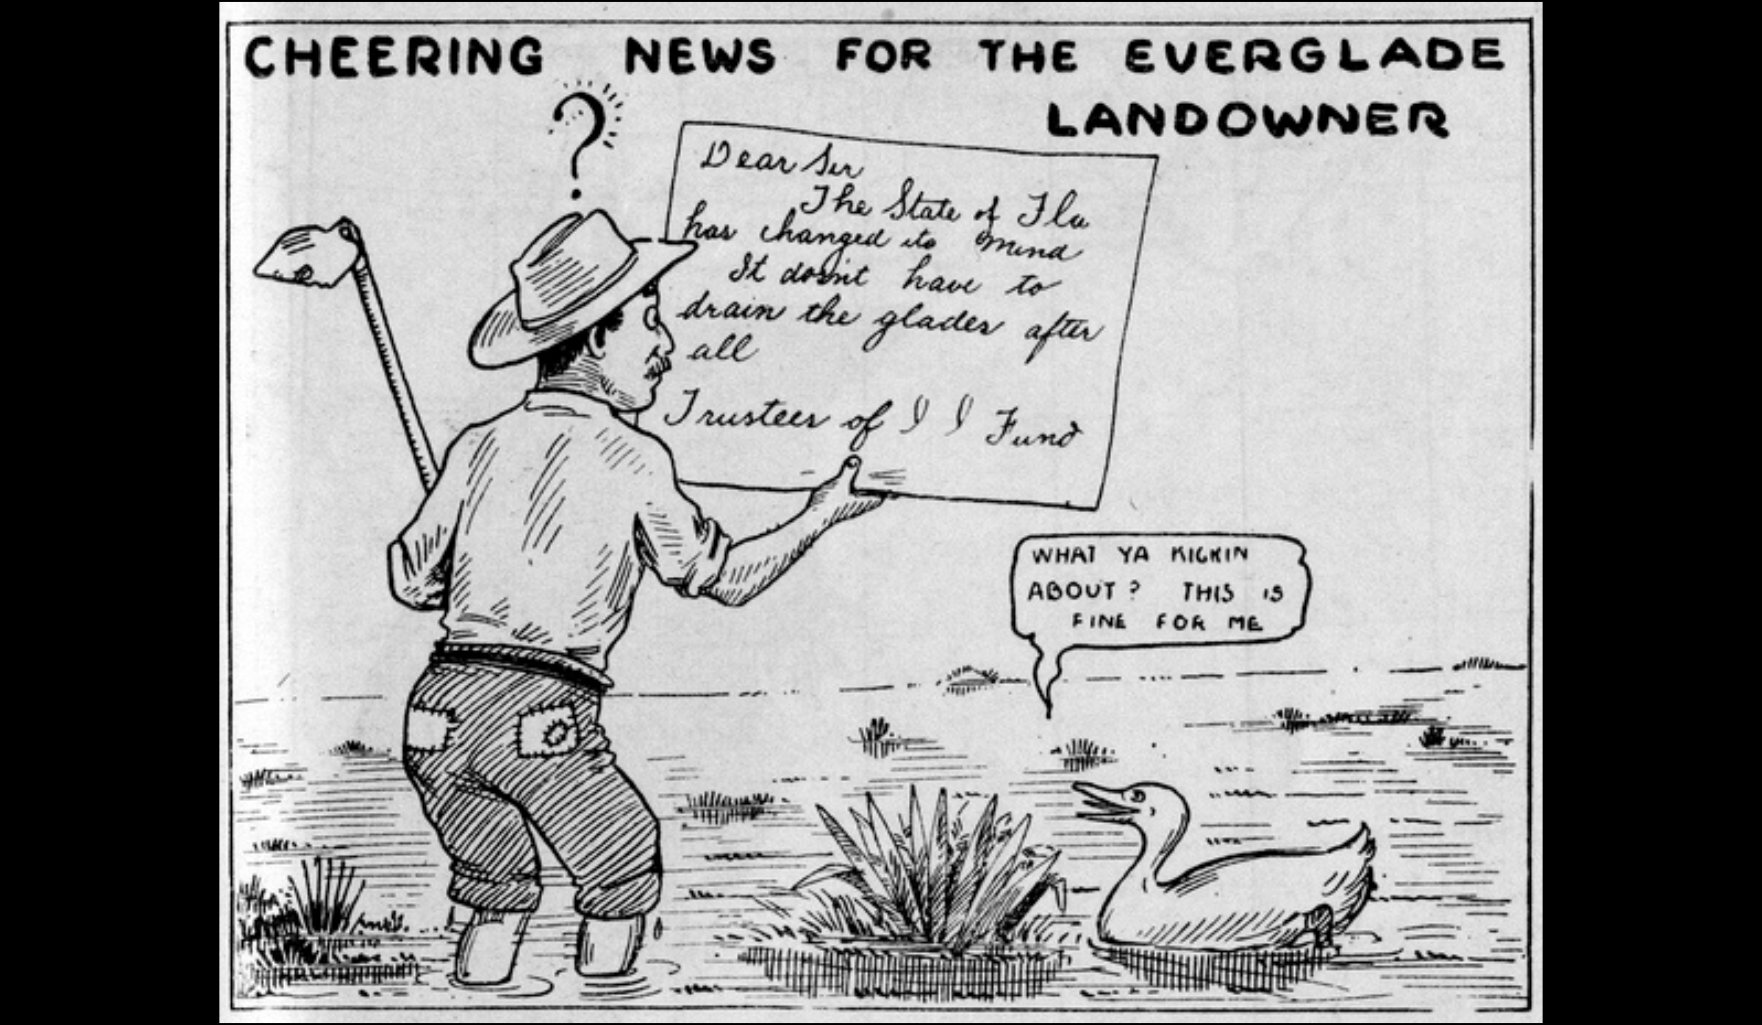 CHEERING NEWS FOR THE EVERGLADE
LANDOWNER
?
Dear Sir
The State of Fla
has changed its mind
It dosnt have to
drain the glades after
all
Trustees of I I Fund
WHAT YA KICKIN
ABOUT? THIS IS
FINE FOR ME